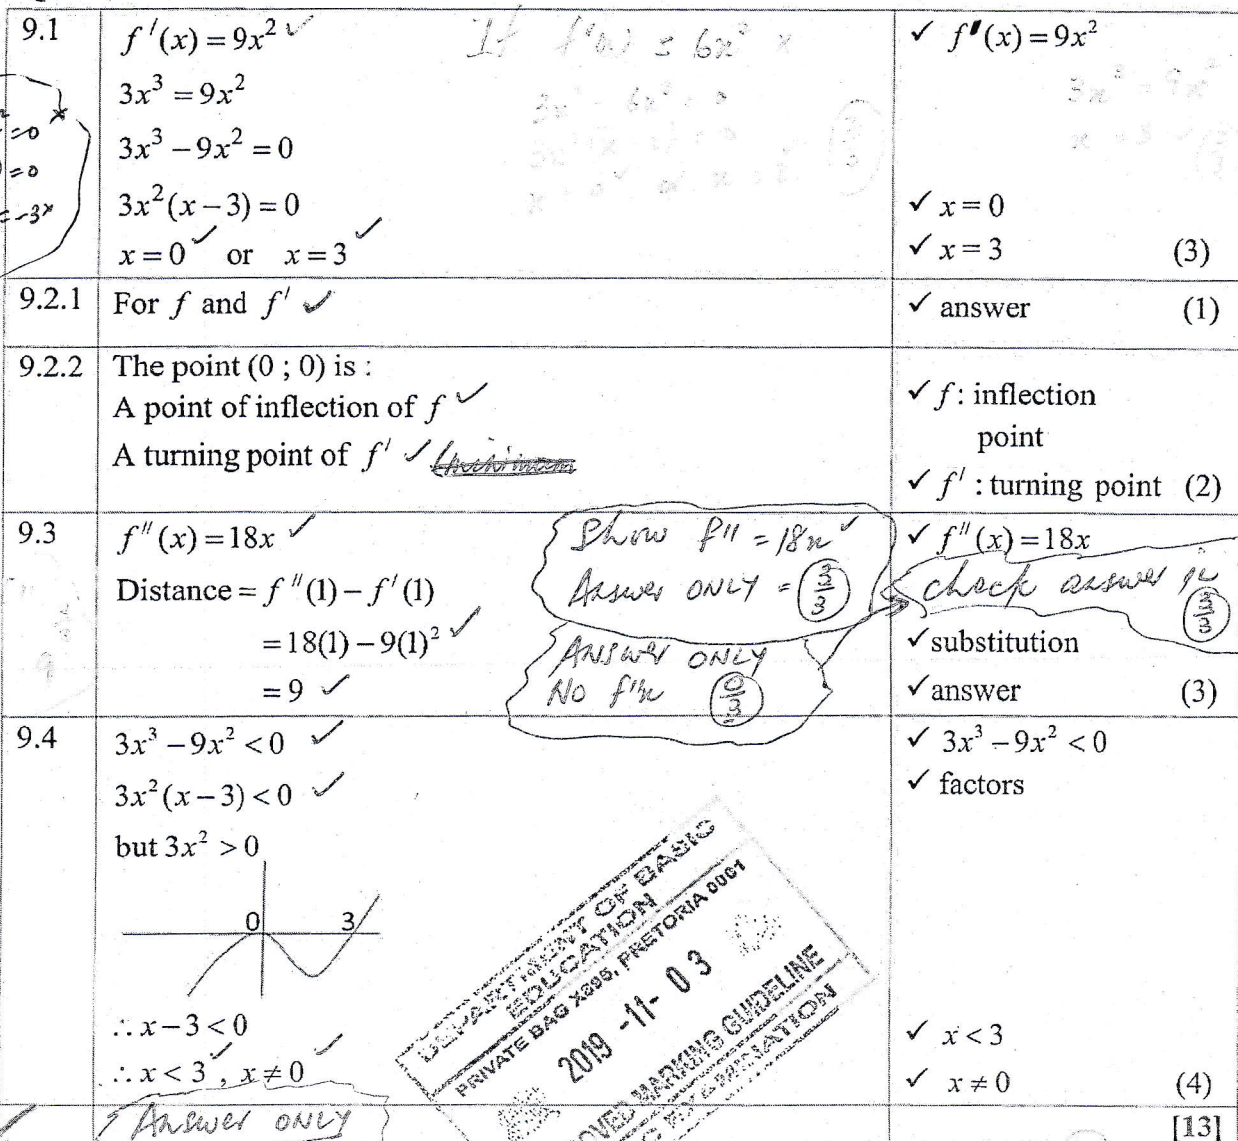 9.1
f ′(x) = 9x² ✓
3x³ = 9x²
3x³ − 9x² = 0
3x²(x − 3) = 0
x = 0 ✓ or x = 3 ✓
If f'(x) = 6x² x
x
=0
=0
=-3x
✓ f″(x) = 9x²
3x³ = 9x²
x = 3
✓ x = 0
✓ x = 3 (3)
9.2.1
For f and f ′ ✓
✓ answer (1)
9.2.2
The point (0 ; 0) is :
A point of inflection of f ✓
A turning point of f ′ ✓
✓ f : inflection
point
✓ f ′ : turning point (2)
9.3
f ″(x) = 18x ✓
Distance = f ″(1) − f ′(1)
= 18(1) − 9(1)² ✓
= 9 ✓
Show f'' = 18x ✓
Answer ONLY = 3/3
ANSWER ONLY
NO f''x 0/3
✓ f ″(x) = 18x
check answer
3/3
✓ substitution
✓ answer (3)
9.4
3x³ − 9x² < 0 ✓
3x²(x − 3) < 0 ✓
but 3x² > 0
0 3
∴ x − 3 < 0
∴ x < 3 ✓ , x ≠ 0 ✓
✓ 3x³ − 9x² < 0
✓ factors
✓ x < 3
✓ x ≠ 0 (4)
DEPARTMENT OF BASIC
EDUCATION
PRIVATE BAG X895, PRETORIA 0001
2019 -11- 03
OVED MARKING GUIDELINE
EXAMINATION
Answer ONLY
[13]